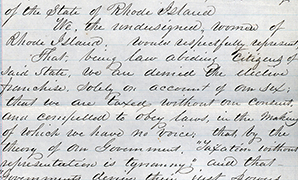 of the State of Rhode Island
We, the undersigned, women of
Rhode Island, would respectfully represent
That, being law abiding Citizens of
said State, we are denied the elective
franchise, solely on account of our sex;
that we are taxed without our consent,
and compelled to obey laws, in the making
of which we have no voice; that by the
theory of our Government, "Taxation without
representation is tyranny" and that
"Governments derive their just powers